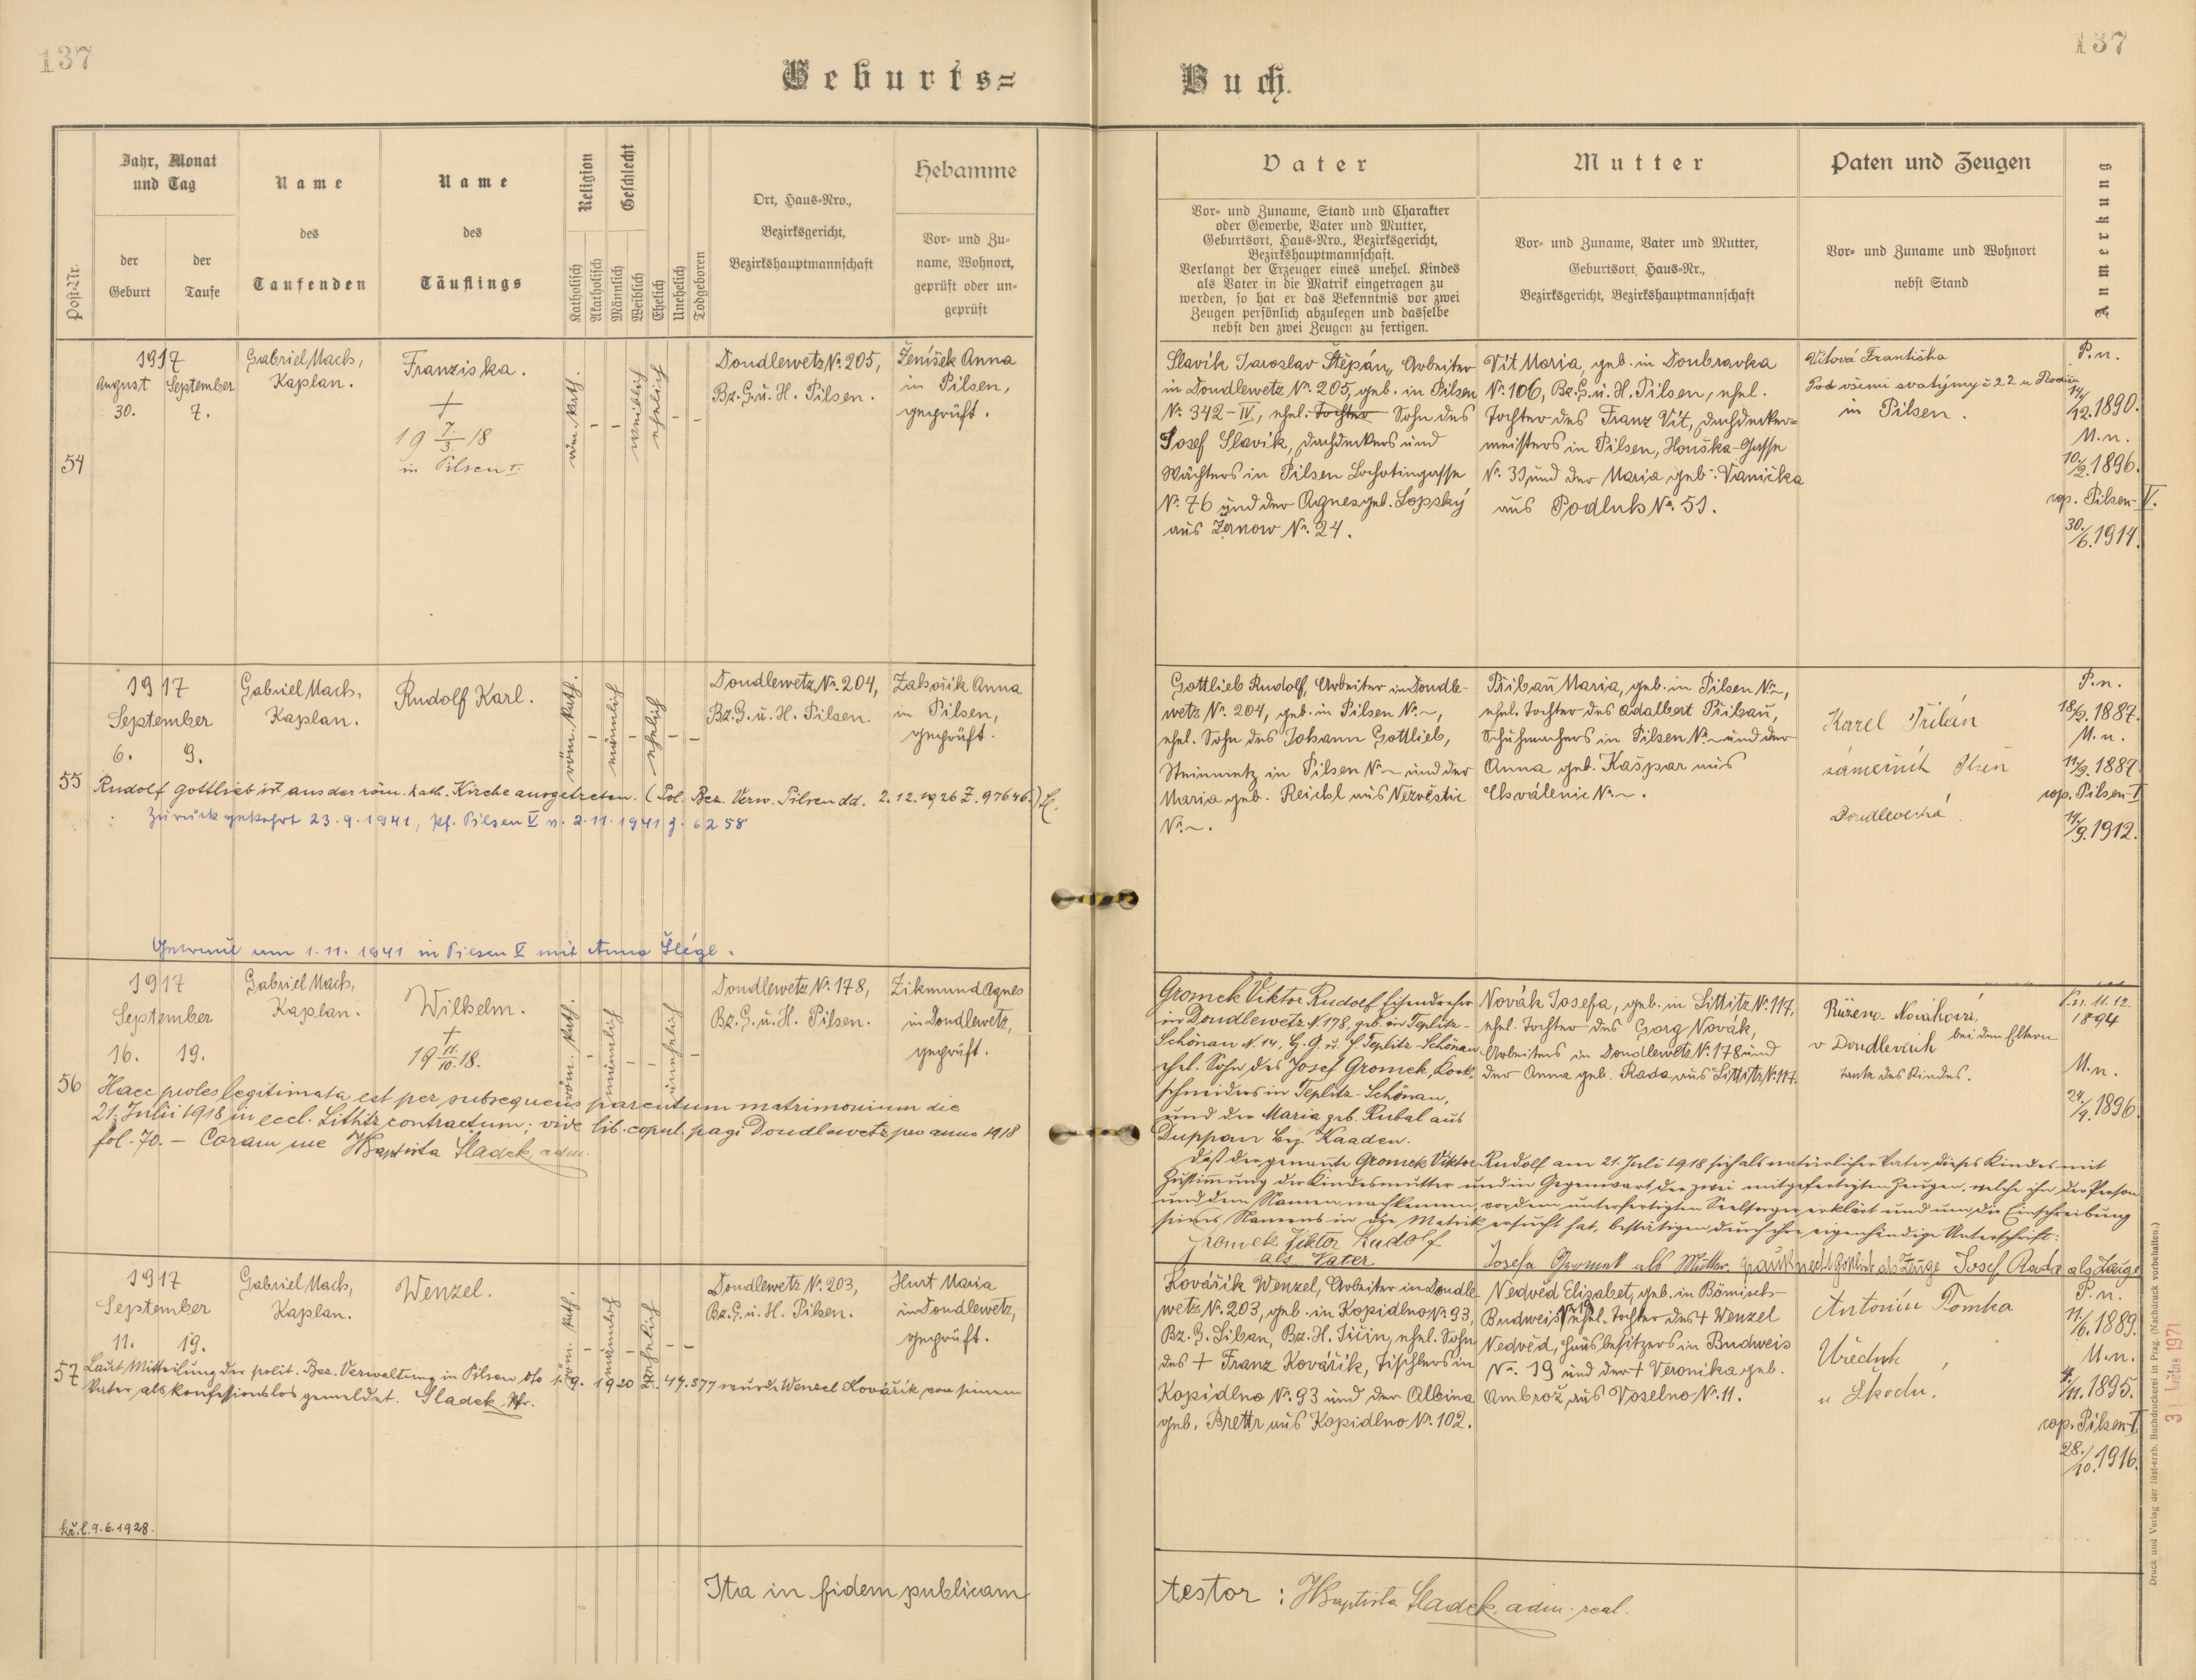 137
137
Geburts=
Buch.
Post-Nr.
Jahr, Monat
und Tag
der
Geburt
der
Taufe
Name
des
Taufenden
Name
des
Täuflings
Religion
Katholisch
Akatholisch
Geschlecht
Männlich
Weiblich
Ehelich
Unehelich
Todgeboren
Ort, Haus-Nro.,
Bezirksgericht,
Bezirkshauptmannschaft
Hebamme
Vor- und Zu-
name, Wohnort,
geprüft oder un-
geprüft
Vater
Vor- und Zuname, Stand und Charakter
oder Gewerbe, Vater und Mutter,
Geburtsort, Haus-Nro., Bezirksgericht,
Bezirkshauptmannschaft.
Verlangt der Erzeuger eines unehel. Kindes
als Vater in die Matrik eingetragen zu
werden, so hat er das Bekenntnis vor zwei
Zeugen persönlich abzulegen und dasselbe
nebst den zwei Zeugen zu fertigen.
Mutter
Vor- und Zuname, Vater und Mutter,
Geburtsort, Haus-Nr.,
Bezirksgericht, Bezirkshauptmannschaft
Paten und Zeugen
Vor- und Zuname und Wohnort
nebst Stand
Anmerkung
54
1917
August September
30. 7.
Gabriel Mach,
Kaplan.
Franziska.
+
19 7./3. 18
in Pilsen I.
röm. kath.
-
-
weiblich
ehelich
-
-
Doudlewetz No. 205,
Bz. G. u. H. Pilsen.
Ženíšek Anna
in Pilsen,
geprüft.
Slavík Jaroslav Štěpán, Arbeiter
in Doudlewetz No. 205, geb. in Pilsen
No. 342-IV, ehel. Tochter Sohn des
Josef Slavík, Dachdeckers und
Wächters in Pilsen Lochotingasse
No. 76 und der Agnes geb. Lopský
aus Žernow No. 24.
Vít Maria, geb. in Doubravka
No. 106, Bz. G. u. H. Pilsen, ehel.
Tochter des Franz Vít, Dachdecker-
meisters in Pilsen, Houška-Gasse
No. 33 und der Maria geb. Vanička
aus Podluh No. 51.
Vítová Františka
Pod všemi svatými č 22 u Plodiín
in Pilsen.
P. n.
14./12. 1890.
M. n.
10./2. 1896.
cop. Pilsen-V.
30./6. 1914.
55
1917
September
6. 9.
Gabriel Mach,
Kaplan.
Rudolf Karl.
röm. kath.
-
männlich
-
ehelich
-
-
Doudlewetz No. 204,
Bz. G. u. H. Pilsen.
Zahořík Anna
in Pilsen,
geprüft.
Rudolf Gottlieb ist aus der röm. kath. Kirche ausgetreten. (Pol. Bez. Verw. Pilsen dd. 2.12.1926 Z. 97646.)
Zurückgekehrt 23.9.1941, Pf. Pilsen V v. 2.11.1941 z. 6258
Getraut am 1.11.1941 in Pilsen V mit Anna Šlégl.
Gottlieb Rudolf, Arbeiter in Doudle-
wetz No. 204, geb. in Pilsen No. ~,
ehel. Sohn des Johann Gottlieb,
Steinmetz in Pilsen No. ~ und der
Maria geb. Reichl aus Nezvěstic
No. ~.
Přibaň Maria, geb. in Pilsen No. ~,
ehel. Tochter des Adalbert Přibaň,
Schuhmachers in Pilsen No. ~ und der
Anna geb. Kašpar aus
Chválenic No. ~.
Karel Přibáň
zámečník Plzeň
Doudlevecká
P. n.
18./9. 1887.
M. n.
11./9. 1887.
cop. Pilsen-I
14./9. 1912.
56
1917
September
16. 19.
Gabriel Mach,
Kaplan.
Wilhelm.
+
19 11./10. 18.
röm. kath.
-
männlich
-
-
unehelich
-
Doudlewetz No. 178,
Bz. G. u. H. Pilsen.
Zikmund Agnes
in Doudlewetz,
geprüft.
Haec proles legitimata est per subsequens parentum matrimonium die
21. Julii 1918 in eccl. Lithitz contractum; vide lib. copul. pagi Doudlewetz pro anno 1918
fol. 70. - Coram me JBaptista Sladek, adm.
Gromek Viktor Rudolf Eisendreher
in Doudlewetz N. 178, geb. in Teplitz-
Schönau N. 14, B. G. u. H. Teplitz-Schönau
ehel. Sohn des Josef Gromek, Kork-
schneiders in Teplitz-Schönau,
und der Maria geb. Rubal aus
Duppau Bz. Kaaden.
Novák Josefa, geb. in Littitz No. 117,
ehel. Tochter des Georg Novák,
Arbeiters in Doudlewetz No. 178 und
der Anna geb. Rada, aus Littitz No. 117.
Růžena Nováková
v Doudlevcích bei den Eltern
Tante des Kindes.
P. n. 11. 12.
1894
M. n.
24./4. 1896.
Daß der genannte Gromek Viktor Rudolf am 21. Juli 1918 sich als natürlicher Vater dieses Kindes mit
Zustimmung der Kindesmutter und in Gegenwart der zwei mitgefertigten Zeugen, welche ihn der Person
und dem Namen nach kennen, vor dem unterfertigten Seelsorger erklärt und um die Einschreibung
seines Namens in die Matrik ersucht hat, bestätigen durch ihre eigenhändige Unterschrift:
Gromek Viktor Rudolf
als Vater
Josefa Gromek als Mutter. Gottlieb als Zeuge Josef Rada als Zeuge
57
1917
September
11. 19.
Gabriel Mach,
Kaplan.
Wenzel.
röm. kath.
-
männlich
-
ehelich
-
-
Doudlewetz No. 203,
Bz. G. u. H. Pilsen.
Hurt Maria
in Doudlewetz,
geprüft.
Laut Mitteilung der polit. Bez. Verwaltung in Pilsen dto 1.9.1920 Z. 47.377 wurde Wenzel Kovářík von seinem
Vater als konfessionslos gemeldet. Sladek Pfr.
kř. l. 9.6.1928.
Kovářík Wenzel, Arbeiter in Doudle-
wetz No. 203, geb. in Kopidlno No. 93,
Bz. G. Liban, Bz. H. Jičin, ehel. Sohn
des + Franz Kovářík, Tischlers in
Kopidlno No. 93 und der Albina
geb. Brettr aus Kopidlno No. 102.
Nedvěd Elisabet, geb. in Bömisch-
Budweis No. 19 ehel. Tochter des + Wenzel
Nedvěd, Hausbesitzers in Budweis
No. 19 und der + Veronika geb.
Ambrož, aus Voselno No. 11.
Antonín Tomka
Úředník
u Škodů.
P. n.
11./6. 1889.
M. n.
4./11. 1895.
cop. Pilsen-I
28./10. 1916.
Ita in fidem publicam
testor: JBaptista Sladek, adm. real.
Druck und Verlag der fürst-erzb. Buchdruckerei in Prag. (Nachdruck vorbehalten.)
31 května 1971